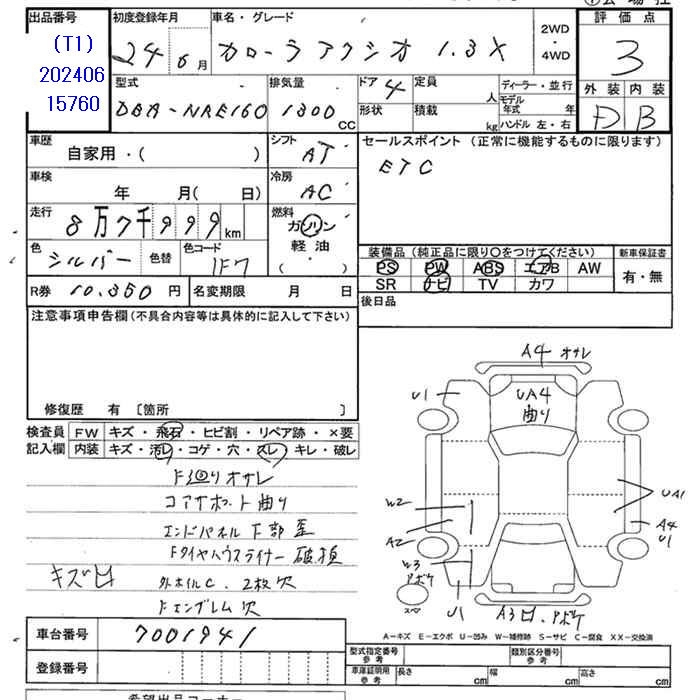 出品番号
(T1)
202406
15760
初度登録年月
24 6月
車名・グレード
カローラアクシオ 1.3X
2WD
・
4WD
評価点
3
型式
DBA-NRE160
排気量
1300 CC
ドア 4
形状
定員 人
積載 kg
ディーラー・並行
モデル年式 年
ハンドル 左・右
外装 内装
D B
車歴
自家用・( )
シフト
AT
セールスポイント (正常に機能するものに限ります)
ETC
車検
年 月( 日)
冷房
AC
走行
8万7千999km
燃料
ガソリン
軽油
( ・ )
色
シルバー
色替
色コード
1F7
装備品 (純正品に限り○をつけてください)
PS PW ABS エアB AW
SR ナビ TV カワ
新車保証書
有・無
R券 10,350 円
名変期限 月 日
後日品
注意事項申告欄(不具合内容等は具体的に記入して下さい)
修復歴 有 〔箇所 〕
検査員
記入欄
FW キズ・飛石・ヒビ割・リペア跡・×要
内装 キズ・汚レ・コゲ・穴・スレ・キレ・破レ
F廻りオサレ
コアサポート曲り
エンドパネル下部歪
Fタイヤハウスライナー破損
キズ凹 外ホイルC.2枚穴
Fエンブレム穴
A4 オサレ
U1
UA4
曲り
W2
A2
UA1
A4
U1
W3
アボケ
U1
A3凹.アボケ
スペ
A-キズ E-エクボ U-凹み W-補修跡 S-サビ C-腐食 XX-交換済
車台番号
7001941
登録番号
型式指定番号
参考
類別区分番号
参考
車庫証明用
参考
長さ cm 幅 cm 高さ cm
希望出品コーナー